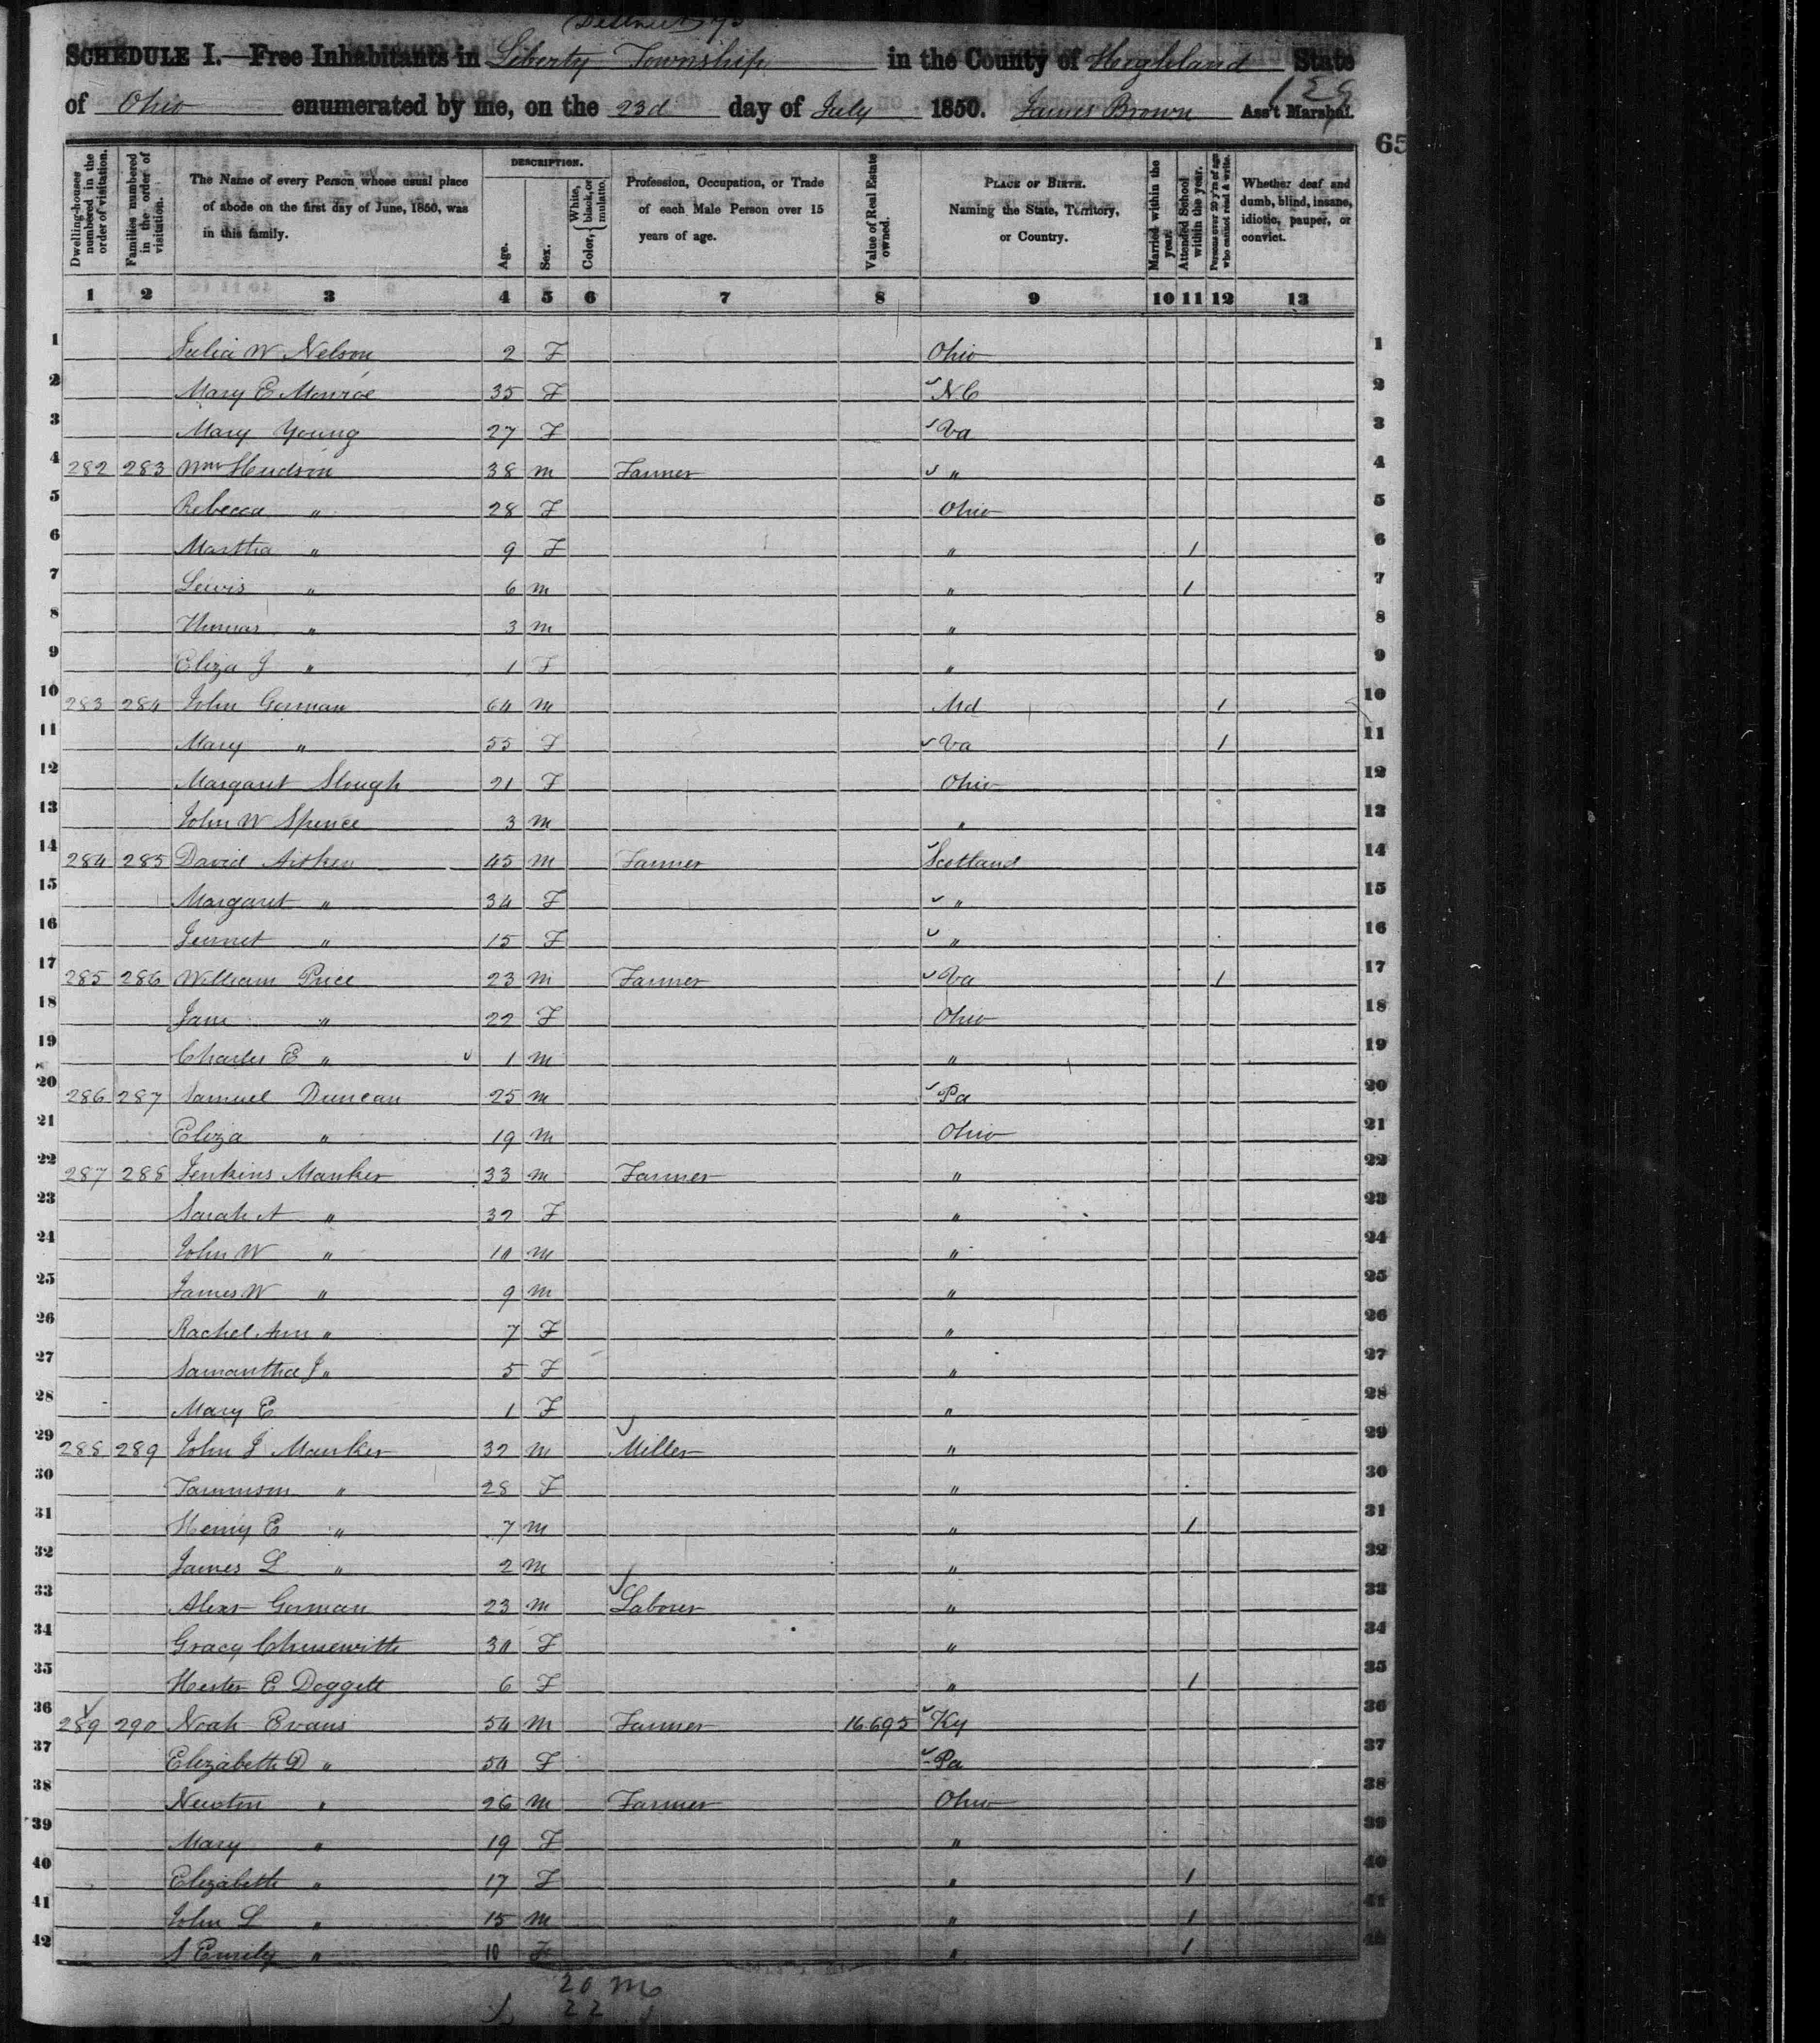 District 75
SCHEDULE I.—Free Inhabitants in Liberty Township in the County of Highland State
of Ohio enumerated by me, on the 23d day of July 1850. James Brown Ass't Marshal.
65
Dwelling-houses numbered in the order of visitation.
Families numbered in the order of visitation.
The Name of every Person whose usual place of abode on the first day of June, 1850, was in this family.
DESCRIPTION.
Age.
Sex.
Color, { White, black, or mulatto.
Profession, Occupation, or Trade of each Male Person over 15 years of age.
Value of Real Estate owned.
PLACE OF BIRTH.
Naming the State, Territory, or Country.
Married within the year.
Attended School within the year.
Persons over 20 y'rs of age who cannot read & write.
Whether deaf and dumb, blind, insane, idiotic, pauper, or convict.
1 2 3 4 5 6 7 8 9 10 11 12 13
1 Julia W Nelson 2 F Ohio 1
2 Mary E Monroe 35 F N C 2
3 Mary Young 27 F Va 3
4 282 283 Wm Hudson 38 m Farmer " 4
5 Rebecca " 28 F Ohio 5
6 Martha " 9 F " 1 6
7 Lewis " 6 m " 1 7
8 Thomas " 3 m " 8
9 Eliza J " 1 F " 9
10 283 284 John Gorman 64 m Md 1 10
11 Mary " 55 F Va 1 11
12 Margaret Slough 21 F Ohio 12
13 John W Spence 3 m " 13
14 284 285 David Aitken 45 m Farmer Scotland 14
15 Margaret " 34 F " 15
16 Jennet " 15 F " 16
17 285 286 William Price 23 m Farmer Va 1 17
18 Jane " 22 F Ohio 18
19 Charles E " 1 m " 19
20 286 287 Samuel Duncan 25 m Pa 20
21 Eliza " 19 m Ohio 21
22 287 288 Jenkins Manker 33 m Farmer " 22
23 Sarah A " 32 F " 23
24 John W " 10 m " 24
25 James W " 9 m " 25
26 Rachel Ann " 7 F " 26
27 Samantha J " 5 F " 27
28 Mary E 1 F " 28
29 288 289 John J Manker 32 m Miller " 29
30 Tammson " 28 F " 30
31 Henry E " 7 m " 1 31
32 James L " 2 m " 32
33 Alexr Gorman 23 m Laborer " 33
34 Gracy 30 F " 34
35 Hester E Doggett 6 F " 1 35
36 289 290 Noah Evans 54 m Farmer 16.695 Ky 36
37 Elizabeth D " 54 F Pa 37
38 Newton " 26 m Farmer Ohio 38
39 Mary " 19 F " 39
40 Elizabeth " 17 F " 1 40
41 John L " 15 m " 1 41
42 S Emily " 10 F " 1 42
20 m
22